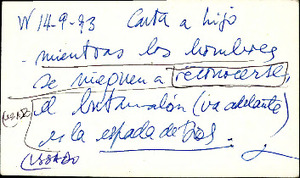 W 14-9-93 Carta a hijo
mientras los hombres
se nieguen a reconocerse,
el (va adelante)
es la espada de Dios.
USADO